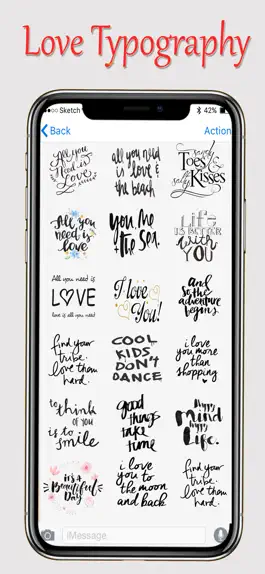 Love Typography
Sketch
42%
Back
Action
All you
Need is
Love
all you
need is
love &
the beach
sandy
Toes &
salty
Kisses
All you
need is
love
you, me
& the sea.
LIFE
IS BETTER
with
YOU
And
so the
adventure
begins.
All you need is
LOVE
love is all you need
I love
You!
find your
tribe.
love them
hard.
COOL
KIDS
DON'T
DANCE
i love
you more
than
shopping
to think
OF YOU
is to
smile
good
things
take
time
Happy
Mind
Happy
Life.
it's a
Beautiful
Day
i love
you to
the moon
and back.
find your
tribe.
love them
hard.
iMessage